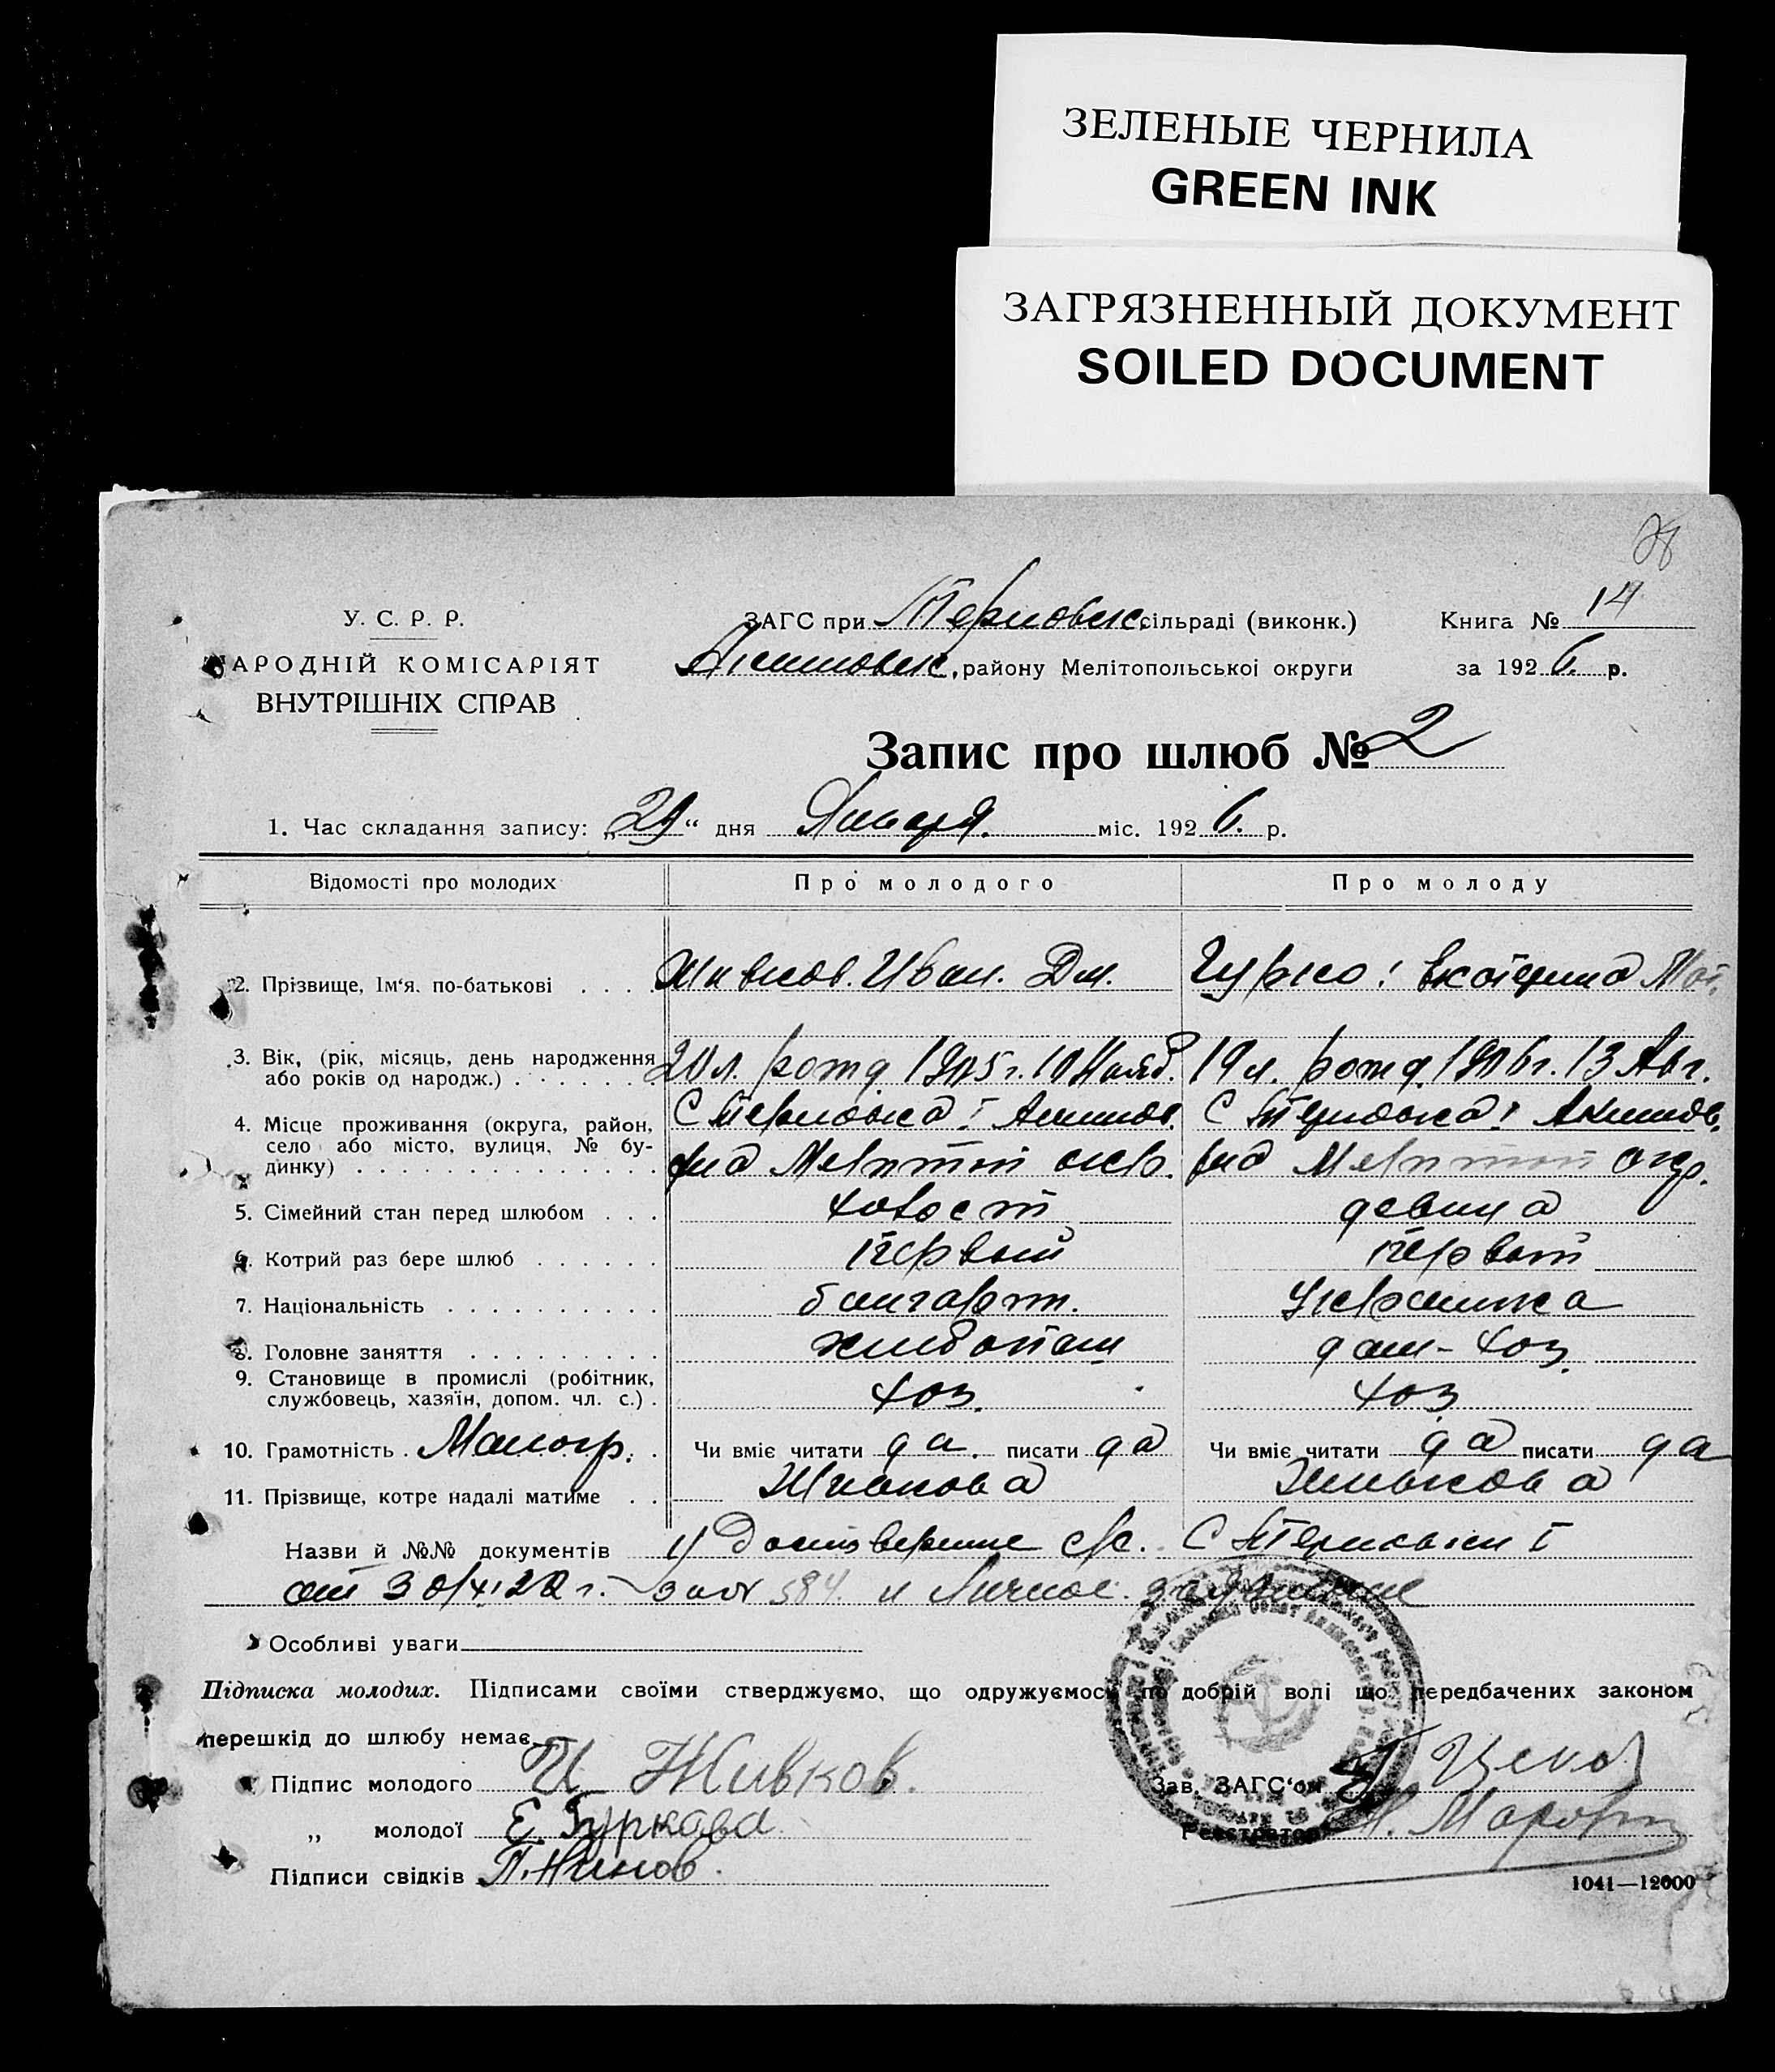 ЗЕЛЕНЫЕ ЧЕРНИЛА
GREEN INK
ЗАГРЯЗНЕННЫЙ ДОКУМЕНТ
SOILED DOCUMENT
У. С. Р. Р.
НАРОДНІЙ КОМІСАРІЯТ
ВНУТРІШНІХ СПРАВ
ЗАГС при Терновск. сільраді (виконк.)
Акимовск. району Мелітопольської округи
Книга № 14
за 1926. р.
Запис про шлюб № 2
1. Час складання запису: „29“ дня Января. міс. 1926. р.
Відомості про молодих Про молодого Про молоду
2. Прізвище, Ім‘я. по-батькові . . . . Живков. Иван. Дм. Гурко Екатерина Мат.
3. Вік, (рік, місяць, день народження
або років од народж.) . . . . . . 20 л. рожд 1905 г. 10 Нояб. 19 л. рожд. 1906 г. 13 Авг.
4. Місце проживання (округа, район,
село або місто, вулиця, № бу-
динку) . . . . . . . . . . . . . .
С Терновка I Акимов. С Терновка I Акимов.
р-на Мелитоп окр. р-на Мелитоп окр.
5. Сімейний стан перед шлюбом . . . холост девица
6. Котрий раз бере шлюб . . . . . . первый первый
7. Національність . . . . . . . . . . болгарин. Украинка
8. Головне заняття . . . . . . . . . хлебопаш дом-хоз.
9. Становище в промислі (робітник,
службовець, хазяїн, допом. чл. с.) . хоз. хоз
10. Грамотність . Малогр. . Чи вміє читати да. писати да Чи вміє читати да писати да
11. Прізвище, котре надалі матиме . . Живкова Живкова
Назви й №№ документів 1) с/с. С Терновки I
от г. за № 584. и Личное.
Особливі уваги
Підписка молодих. Підписами своїми стверджуємо, що одружуємось по добрій волі що передбачених законом
перешкід до шлюбу немає.
Підпис молодого И Живков.
„ молодої Е. Гуркова
Підписи свідків П. Нинов.
Зав. ЗАГС‘ом
Реєстратор
1041—12000